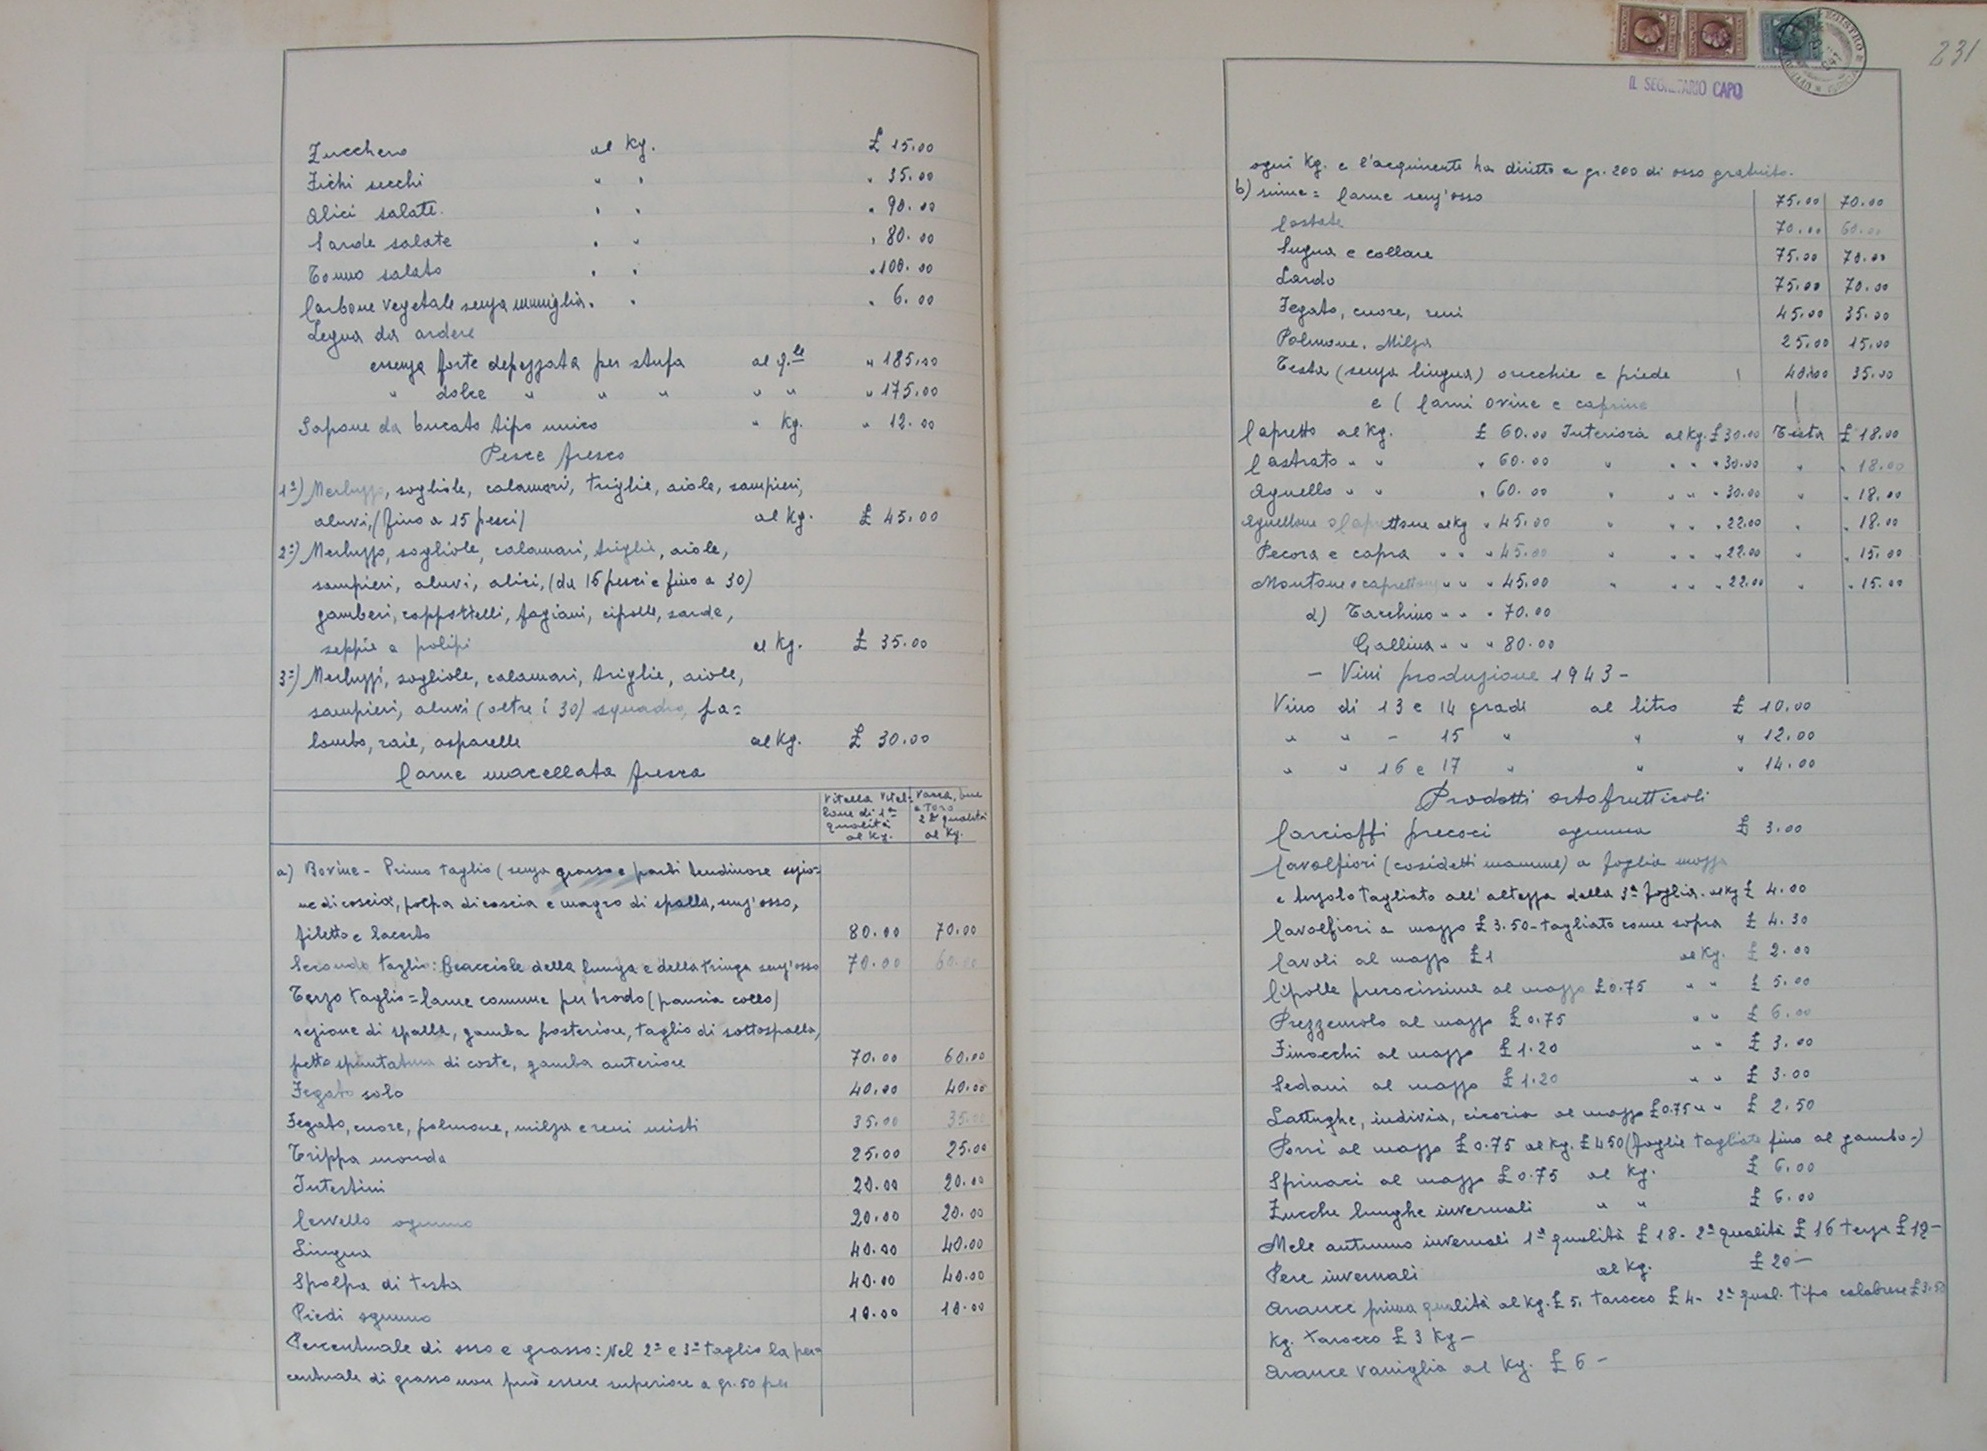 Zucchero al Kg. £ 15.00
Fichi secchi " " " 35.00
Alici salate " " " 90.00
Sarde salate " " " 80.00
Tonno salato " " " 100.00
Carbone vegetale senza muniglia " " " 6.00
Legna da ardere
essenza forte depezzata per stufa al q.le " 185.00
" dolce " " " " " " 175.00
Sapone da bucato tipo unico " Kg. " 12.00
Pesce fresco
1ª) Merluzzo, sogliole, calamari, triglie, aiole, sampieri,
aluvi, (fino a 15 pesci) al Kg. £ 45.00
2ª) Merluzzo, sogliole, calamari, triglie, aiole,
sampieri, aluvi, alici, (da 15 pesci e fino a 30)
gamberi, cappottelli, fagiani, cipolle, sarde,
seppie e polipi al Kg. £ 35.00
3ª) Merluzzi, sogliole, calamari, triglie, aiole,
sampieri, aluvi (oltre i 30) squadro, pa=
lombo, raie, asparelle al Kg. £ 30.00
Carne macellata fresca
Vitella Vitel= Vacca, bue
lone di 1ª e Toro
qualità 2ª qualità
al Kg. al Kg.
a) Bovine - Primo taglio (senza grasso e parti tendinose sezio=
ne di coscia, polpa di coscia e magro di spalla, senz'osso,
filetto e lacerto 80.00 70.00
Secondo taglio: Beacciole della funza e della tringa senz'osso 70.00 60.00
Terzo taglio = Carne comune per brodo (pancia collo)
sezione di spalla, gamba posteriore, taglio di sottospalla,
petto spuntatura di coste, gamba anteriore 70.00 60.00
Fegato solo 40.00 40.00
Fegato, cuore, polmone, milza e reni misti 35.00 35.00
Trippa monda 25.00 25.00
Intestini 20.00 20.00
Cervello ognuno 20.00 20.00
Lingua 40.00 40.00
Spolpa di testa 40.00 40.00
Piedi ognuno 10.00 10.00
Percentuale di osso e grasso: Nel 2ª e 3ª taglio la per=
centuale di grasso non può essere superiore a gr. 50 per
231
IL SEGRETARIO CAPO
ogni Kg. e l'acquirente ha diritto a gr. 200 di osso gratuito.
b) suine = Carne senz'osso 75.00 70.00
Costate 70.00 60.00
Sugna e collare 75.00 70.00
Lardo 75.00 70.00
Fegato, cuore, reni 45.00 35.00
Polmone. Milza 25.00 15.00
Testa (senza lingua) orecchie e piede 40.00 35.00
c ( Carni ovine e caprine
Capretto al Kg. £ 60.00 Interiora al Kg. £ 30.00 Testa £ 18.00
Castrato " " " 60.00 " " " " 30.00 " " 18.00
Agnello " " " 60.00 " " " " 30.00 " " 18.00
Agnellone o Caprettone al Kg " 45.00 " " " " 22.00 " " 18.00
Pecora e capra " " " 45.00 " " " " 22.00 " " 15.00
Montone o caprettone " " " 45.00 " " " " 22.00 " " 15.00
d) Tacchino " " " 70.00
Gallina " " " 80.00
- Vini produzione 1943 -
Vino di 13 e 14 gradi al litro £ 10.00
" " - 15 " " " 12.00
" " 16 e 17 " " " 14.00
Prodotti ortofrutticoli
Carcioffi precoci ognuna £ 3.00
Cavolfiori (cosidetti mamme) a foglia mozza
e torzolo tagliato all'altezza della 3ª foglia. al Kg £ 4.00
Cavolfiori a mazzo £ 3.50 - tagliato come sopra £ 4.30
Cavoli al mazzo £ 1 al Kg. £ 2.00
Cipolle precocissime al mazzo £ 0.75 " " £ 5.00
Prezzemolo al mazzo £ 0.75 " " £ 6.00
Finocchi al mazzo £ 1.20 " " £ 3.00
Sedani al mazzo £ 1.20 " " £ 3.00
Lattughe, indivia, cicoria al mazzo £ 0.75 " " £ 2.50
Porri al mazzo £ 0.75 al Kg. £ 450 (foglie tagliate fino al gambo -)
Spinaci al mazzo £ 0.75 al Kg. £ 6.00
Zucche lunghe invernali " " £ 6.00
Mele autunno invernali 1ª qualità £ 18 - 2ª qualità £ 16 terza £ 12 -
Pere invernali al Kg. £ 20 -
Arance prima qualità al Kg. £ 5. tarocco £ 4 - 2ª qual. tipo calabrese £ 3.50
Kg. tarocco £ 3 Kg -
Arance vaniglia al Kg. £ 6 -